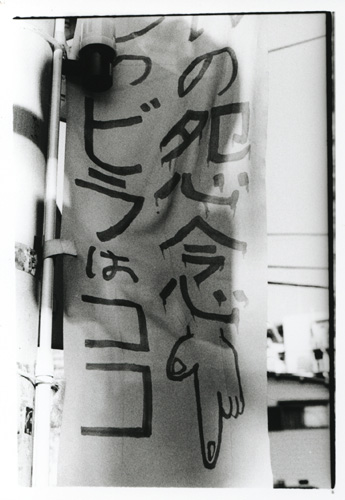 の怨念
つビラはココ